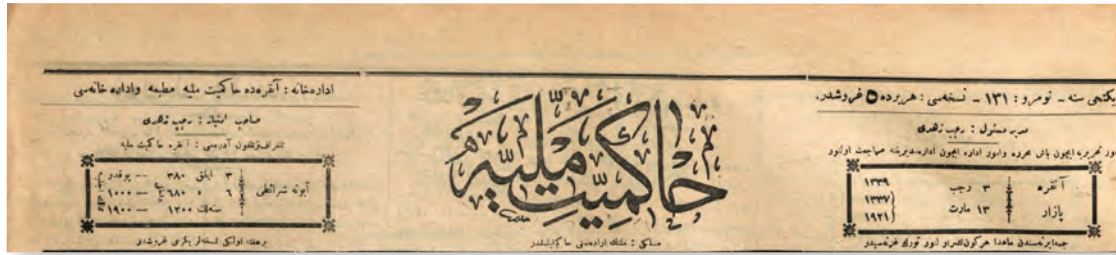 سنه – نومرو : ۱۳۱ – نسخه‌سی : هر یرده ۵ غروشدر.
مدیر مسئول : رجب زهدی
امور تحریریه ایچون باش محرره وامور اداره ایچون اداره مدیرینه مراجعت اولنور
آنقره
۳ رجب
۱۳۳۹
پازار
۱۳ مارت
۱۳۳۷
۱۹۲۱
جمعه ایرته‌سندن ماعدا هرکون نشر اولنور تورک غزته‌سیدر
حاکمیت ملیه
مسلکی : ملتك اراده‌سنی حاکم قیلمقدر
اداره‌خانه : آنقره‌ده حاکمیت ملیه مطبعه واداره خانه‌سی
صاحب امتیاز : رجب زهدی
تلغراف وتلفون آدره‌سی : آنقره حاکمیت ملیه
آبونه شرائطی
۳ آیلق ۳۸۰ — یوقدر
۶ » ۶۸۰ — ۱۰۰۰
سنه‌لك ۱۲۰۰ — ۱۹۰۰
بر هفته اولکی نسخه‌لر یکرمی غروشدر